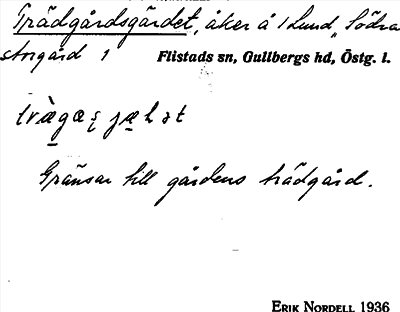 Trädgårdsgärdet, åker å 1 Lund, Södra
storgård 1 Flistads sn, Gullbergs hd, Östg. l.
Gränsar till gårdens trädgård.
ERIK NORDELL 1936